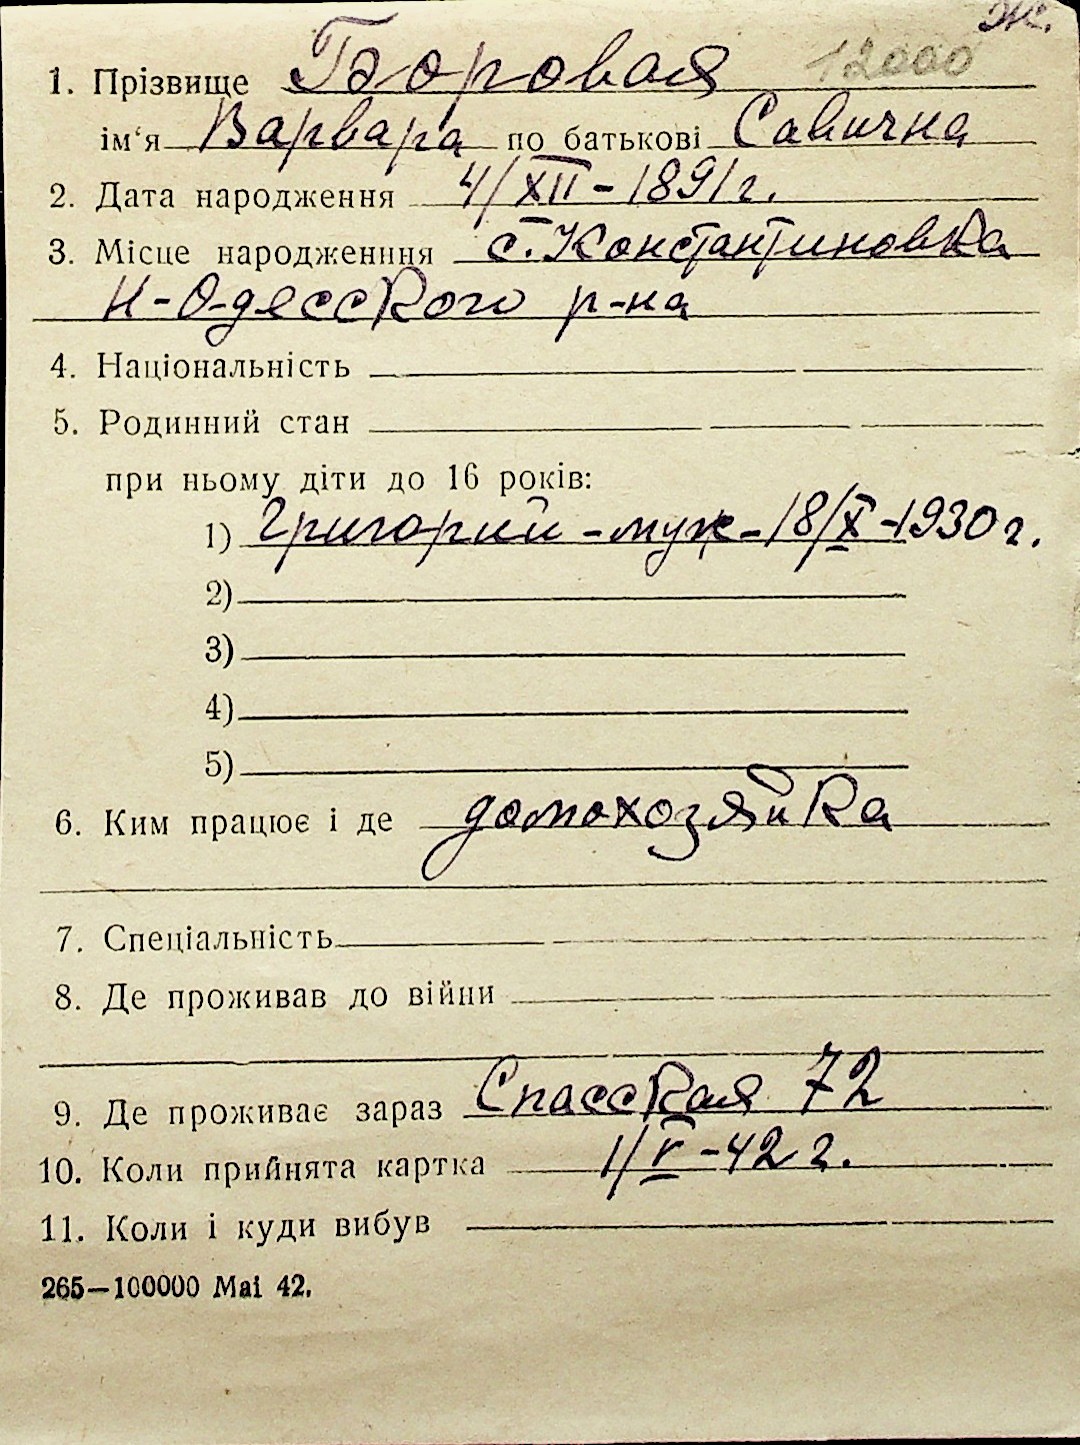 Ж.
1. Прізвище Боровая 12000
ім'я Варвара по батькові Савична
2. Дата народження 4/XII - 1891 г.
3. Місце народженння с. Константиновка
Н-Одесского р-на
4. Національність
5. Родинний стан
при ньому діти до 16 років:
1) Григорий - муж - 18/X - 1930 г.
2)
3)
4)
5)
6. Ким працює і де домохозяйка
7. Спеціальність
8. Де проживав до війни
9. Де проживає зараз Спасская 72
10. Коли прийнята картка 1/V - 42 г.
11. Коли і куди вибув
265—100000 Mai 42.